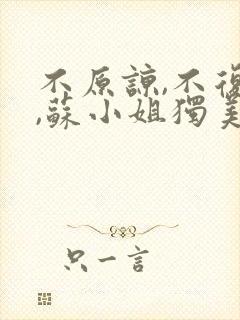 不原諒,不復
,蘇小姐獨美
只一言